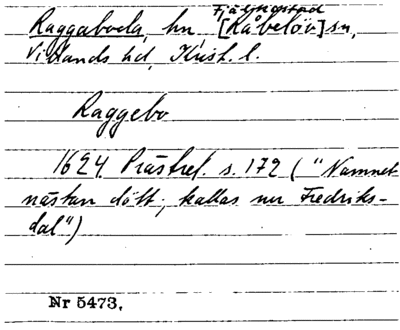 Fjälkestad
Raggaboda, hn, [Råbelöv] sn,
Villands hd, Krist. l.
Raggebo
1624. Prästrel. s. 172 ("Namnet
nästan dött; kallas nu Fredriks-
dal")
Nr 5473,